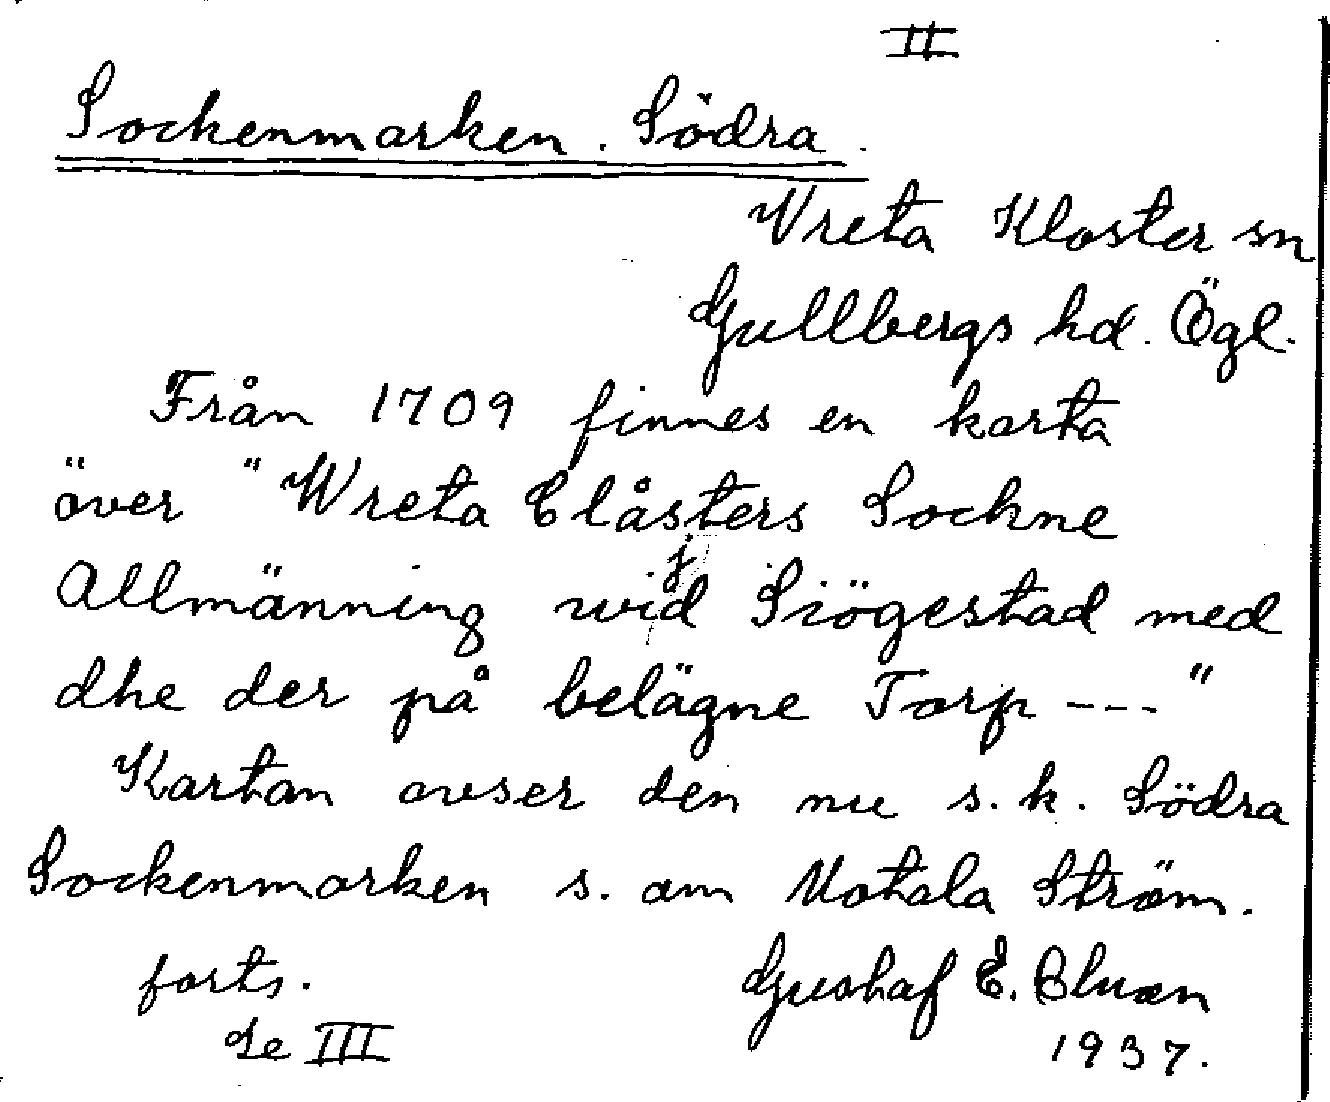 II
Sockenmarken. Södra.
Vreta Kloster sn
Gullbergs hd. Ögl.
Från 1709 finnes en karta
över "Wreta Clåsters Sockne
Allmänning wijd Siögestad med
dhe der på belägne Torp ---"
Kartan avser den nu s. k. Södra
Sockenmarken s. om Motala Ström.
forts. Gustaf E.
Se III 1937.